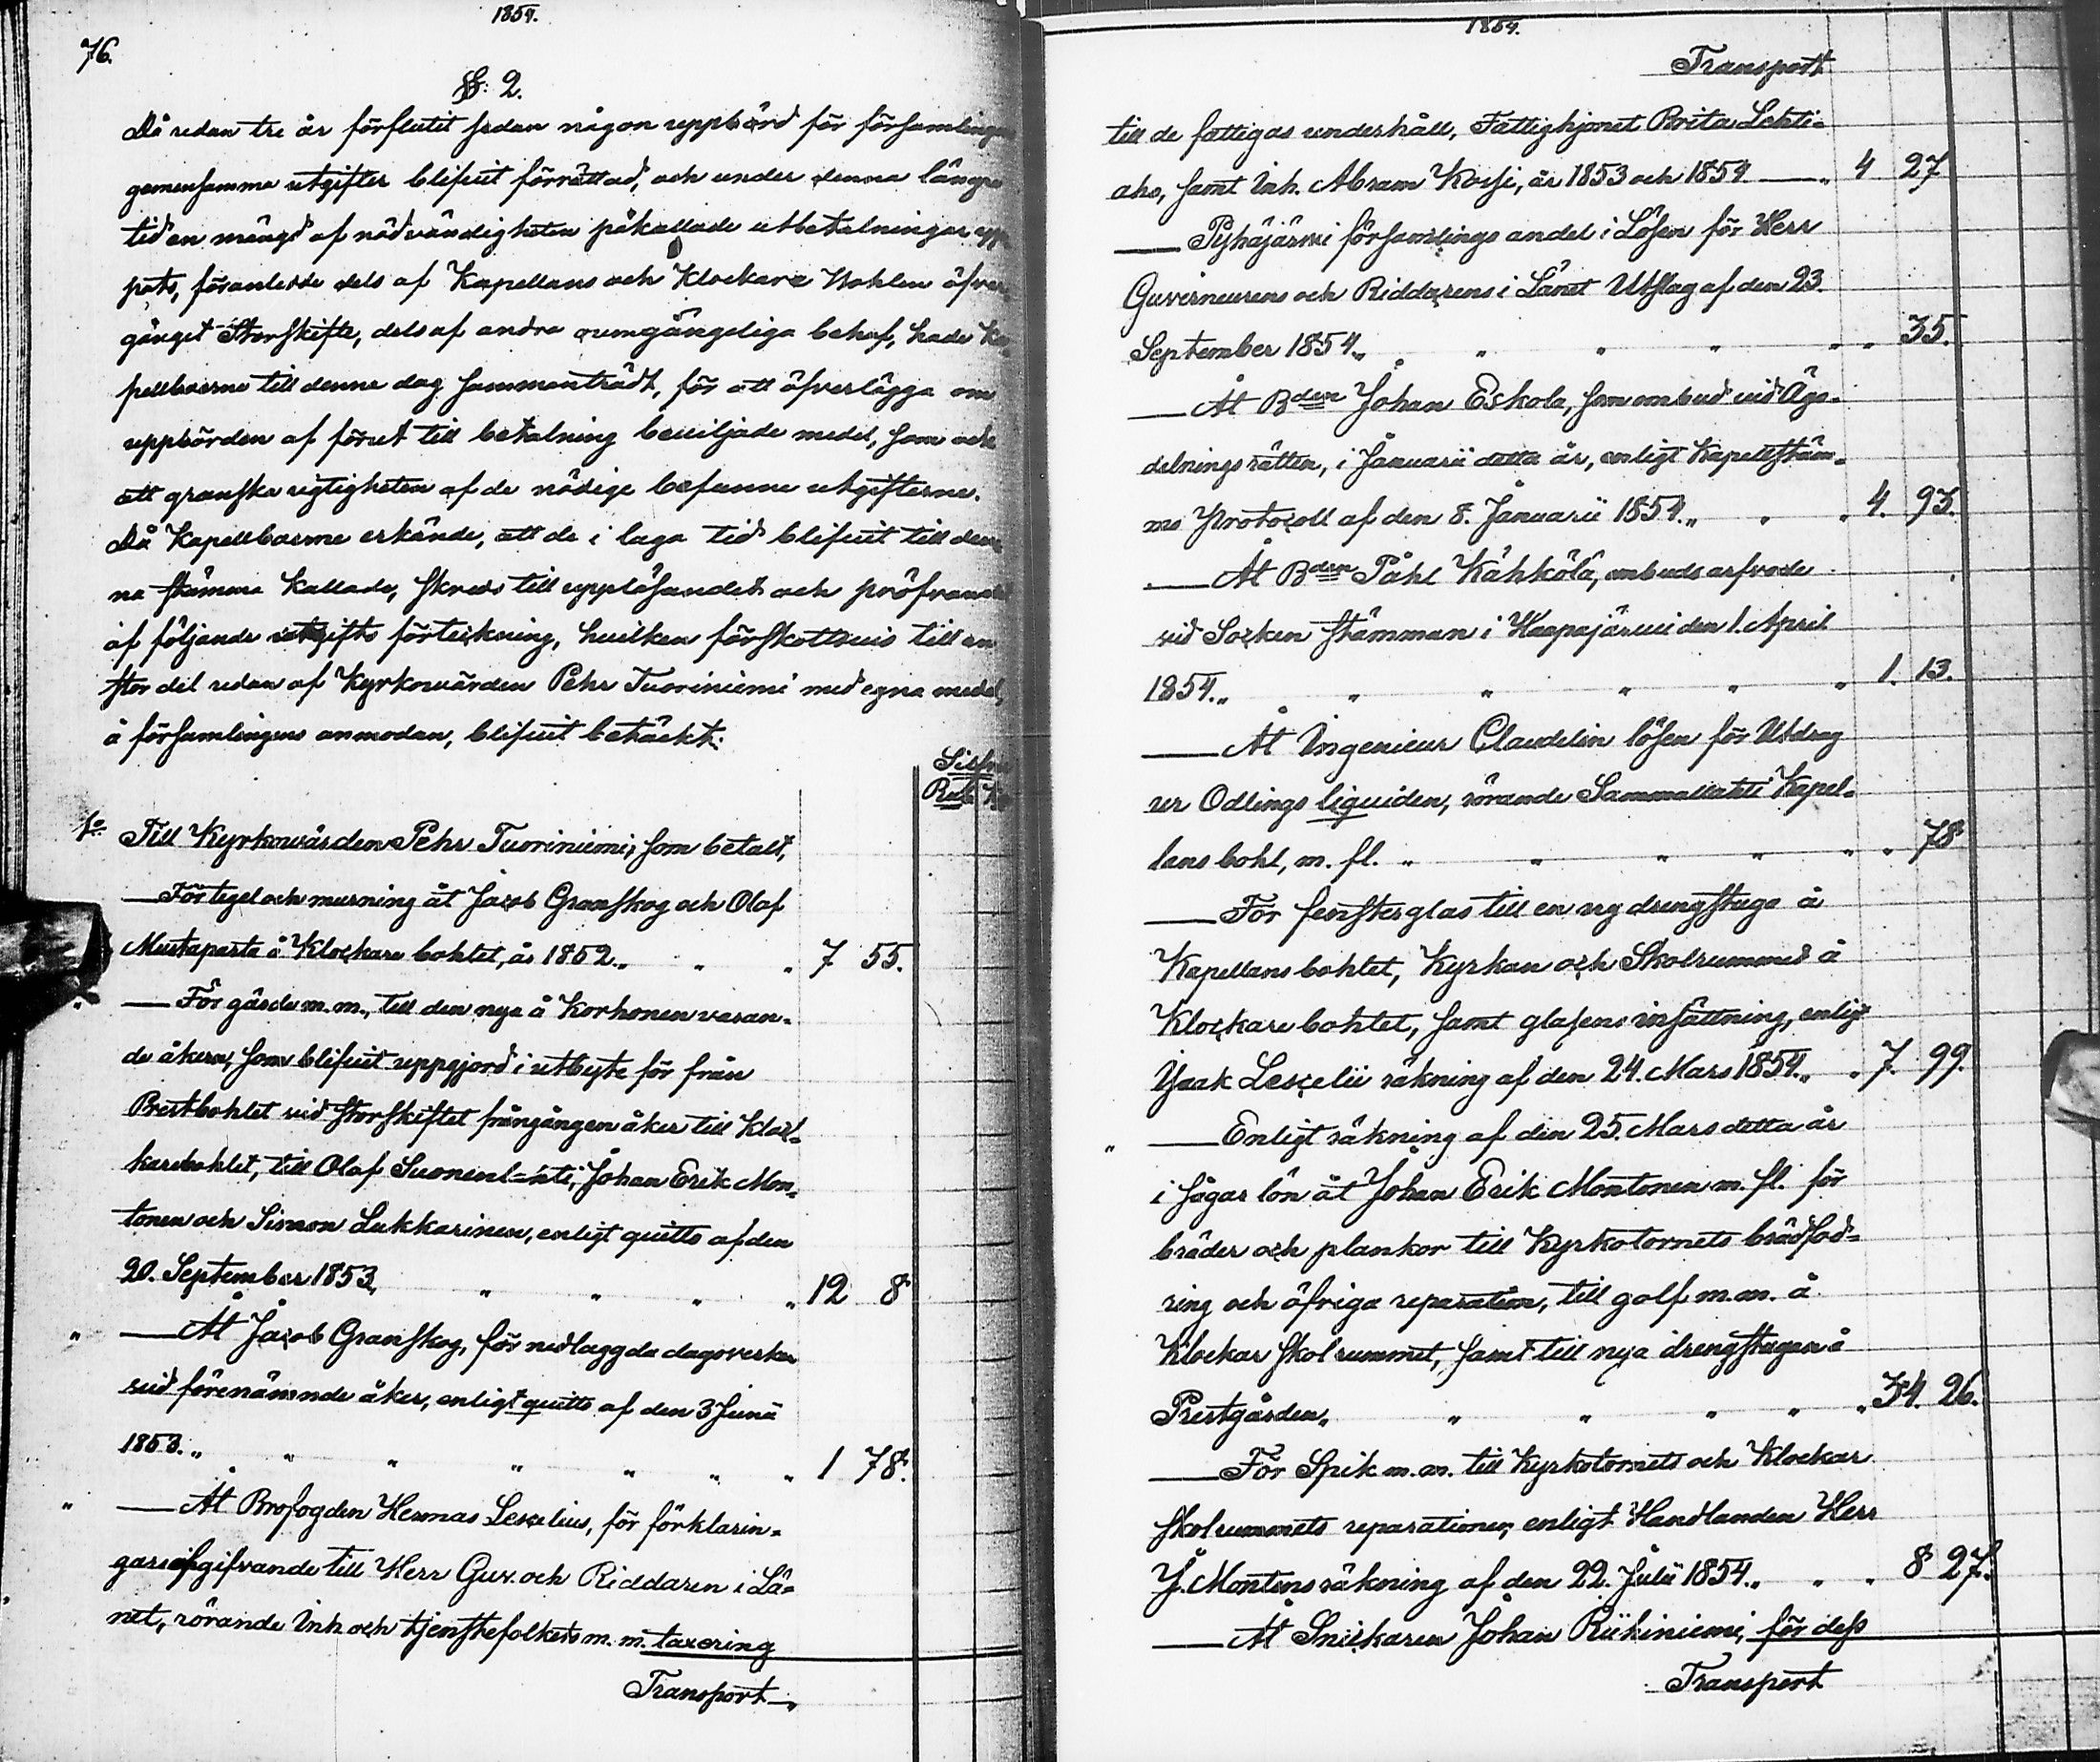 1854.
76.
§: 2.
Då redan tre år förflutit sedan någon uppbörd för församlingens
gemensamma utgifter blifvit förrättad, och under denna längre
tid en mängd af nödvändigheten påkallade utbetalningar upp
pats, föranledde dels af Kapellans och Klockare Bohlen öfver
gånget Storskifte, dels af andra oumgängeliga behof, hade Ka
pellboerne till denne dag sammanträdt, för att öfverlägga om
uppbörden af förut till betalning beviljade medel, som ock
att granska rigtigheten af de nödige befunne utgifterne.
Då Kapellboerne erkände, att de i laga tid blifvit till den
na stämma kallade, skreds till uppläsandet och pröfvandet
af följande utgifts förteckning, hvilken förskottsvis till en
stor del redan af Kyrkovärden Pehr Tuoriniemi med egna medel,
å församlingens anmodan, blifvit betäckt:
Silfver
Rub. Kop
1o Till Kyrkovärden Pehr Tuoriniemi, som betalt,
— För tegel och murning åt Jacob Granskog och Olaf
Mustaparta å Klockare bohlet, år 1852. „ „ „ 7 55.
„ — För gärde m.m., till den nya å Korhonen varan-
de åkern, som blifvit uppgjord i utbyte för från
Prestbohlet vid storskiftet frångången åker till Kloc-
karebohlet, till Olaf Suonenlahti, Johan Erik Mon-
tonen och Simon Lukkarinen, enligt quitto af den
20. September 1853. „ „ „ „ 12 8
„ — Åt Jacob Granskog, för nedlaggda dagsverken
vid förenämnde åker, enligt quitto af den 3 Junii
1853. „ „ „ „ „ „ „ 1 78.
„ — Åt Brofogden Hermas Lescelius, för förklarin-
gars afgifvande till Herr Guv. och Riddaren i Lä-
net, rörande Inh och tjenstefolkets m. m. taxering
Transport „
1854.
Transport
till de fattigas underhåll, Fattighjonet Brita Lehti-
aho, samt Inh. Abram Koisi, år 1853 och 1854 — „ 4 27
— Pyhäjärvi församlings andel i Lösen för Herr
Guverneurens och Riddarens i Länet Utslag af den 23.
September 1854. „ „ „ „ „ „ 35.
— Åt Bden Johan Eskola, som ombud vid Ägo-
delningsrätten, i Januarii detta år, enligt Kapellstäm-
mo Protocoll af den 8. Januarii 1854. „ „ „ 4. 93.
— Åt Bden Påhl Kähkölä, ombuds arfvode
vid Socken stämman i Haapajärvi den 1. April
1854. „ „ „ „ „ „ 1. 13.
— Åt Ingenieur Claudelin lösen för Utdrag
ur Odlings liquiden, rörande Sammallahti Kapel-
lans bohl, m. fl. „ „ „ „ „ „ 78
— För fensterglas till en ny drengstuga å
Kapellans bohlet, Kyrkan och Skolrummet å
Klockare bohlet, samt glasens insättning, enligt
Isaak Lescelii räkning af den 24. Mars 1854. „ „ 7. 99.
„ — Enligt räkning af den 25. Mars detta år
i sågar lön åt Johan Erik Montonen m. fl. för
bräder och plankor till Kyrkotornets brädfod-
ring och öfriga reparation, till golf m.m. å
Klockar skolrummet, samt till nya drengstugan å
Prestgården. „ „ „ „ „ „ 34. 26.
— För Spik m. m. till Kyrkotornets och Klockar
skolrummets reparationer, enligt Handlanden Herr
J. Montens räkning af den 22. Julii 1854. „ „ „ 8 27.
— Åt Snickaren Johan Riikiniemi, för dess
Transport